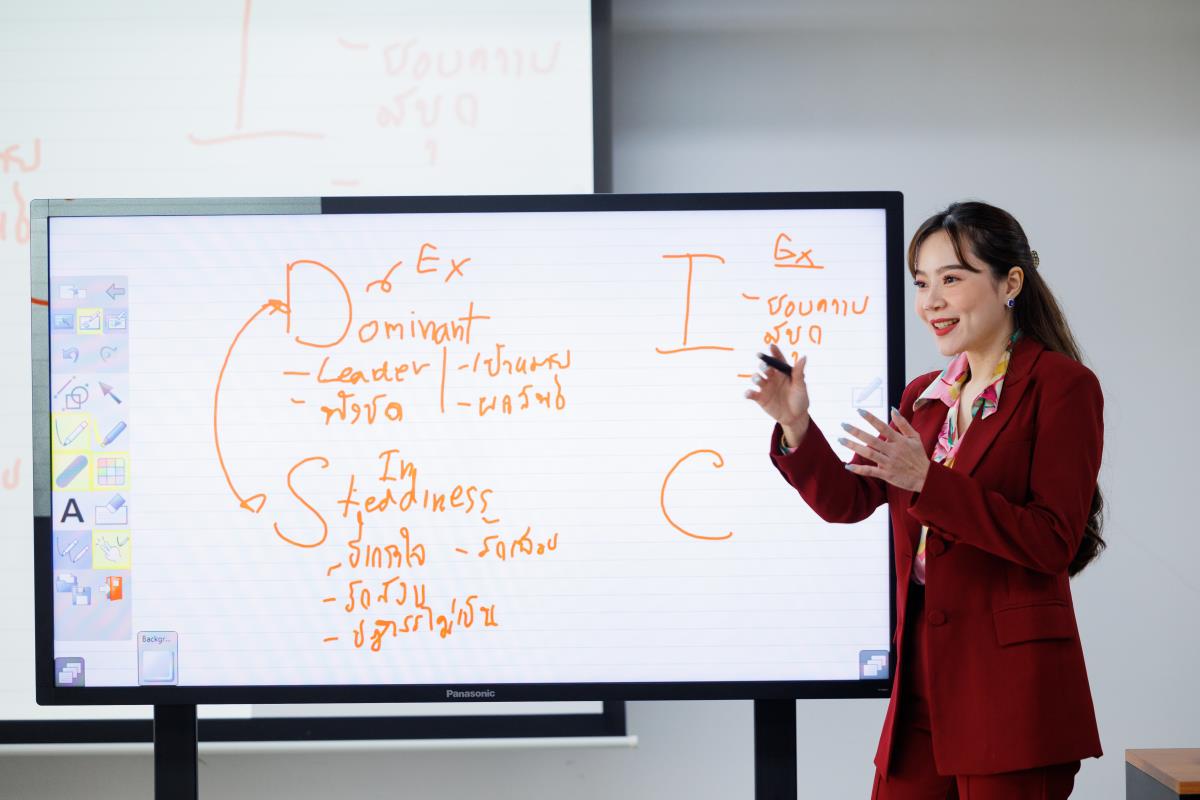 ชอบความ
สนุก
Ex
Dominant
- Leader | - เป้าหมาย
- | - ผลลัพธ์
Im
Steadiness
- ขี้เกรงใจ
- รักสงบ
- ปฏิเสธไม่เป็น
I
Ex
- ชอบความ
สนุก
-
C
A
Backgr...
Panasonic